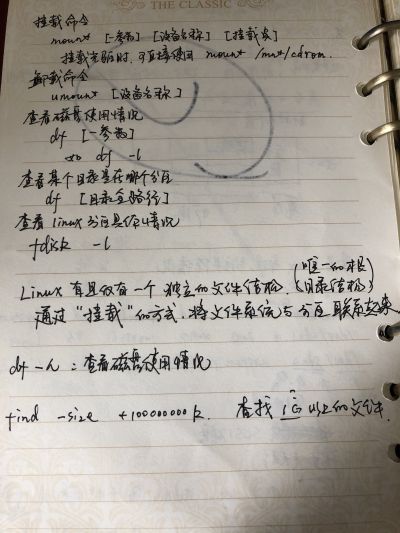 THE CLASSIC
挂载命令
mount [-参数] [设备名称] [挂载点]
挂载光驱时,可直接使用 mount /mnt/cdrom.
卸载命令
umount [设备名称]
查看磁盘使用情况
df [-参数]
df -l
查看某个目录是在哪个分区
df [目录全路径]
查看linux分区具体情况
fdisk -l
Linux 有且仅有一个独立的文件结构 (唯一的根目录结构)
通过"挂载"的方式,将文件系统与分区联系起来
df -h : 查看磁盘使用情况
find -size +100000000k. 查找 以上的文件.